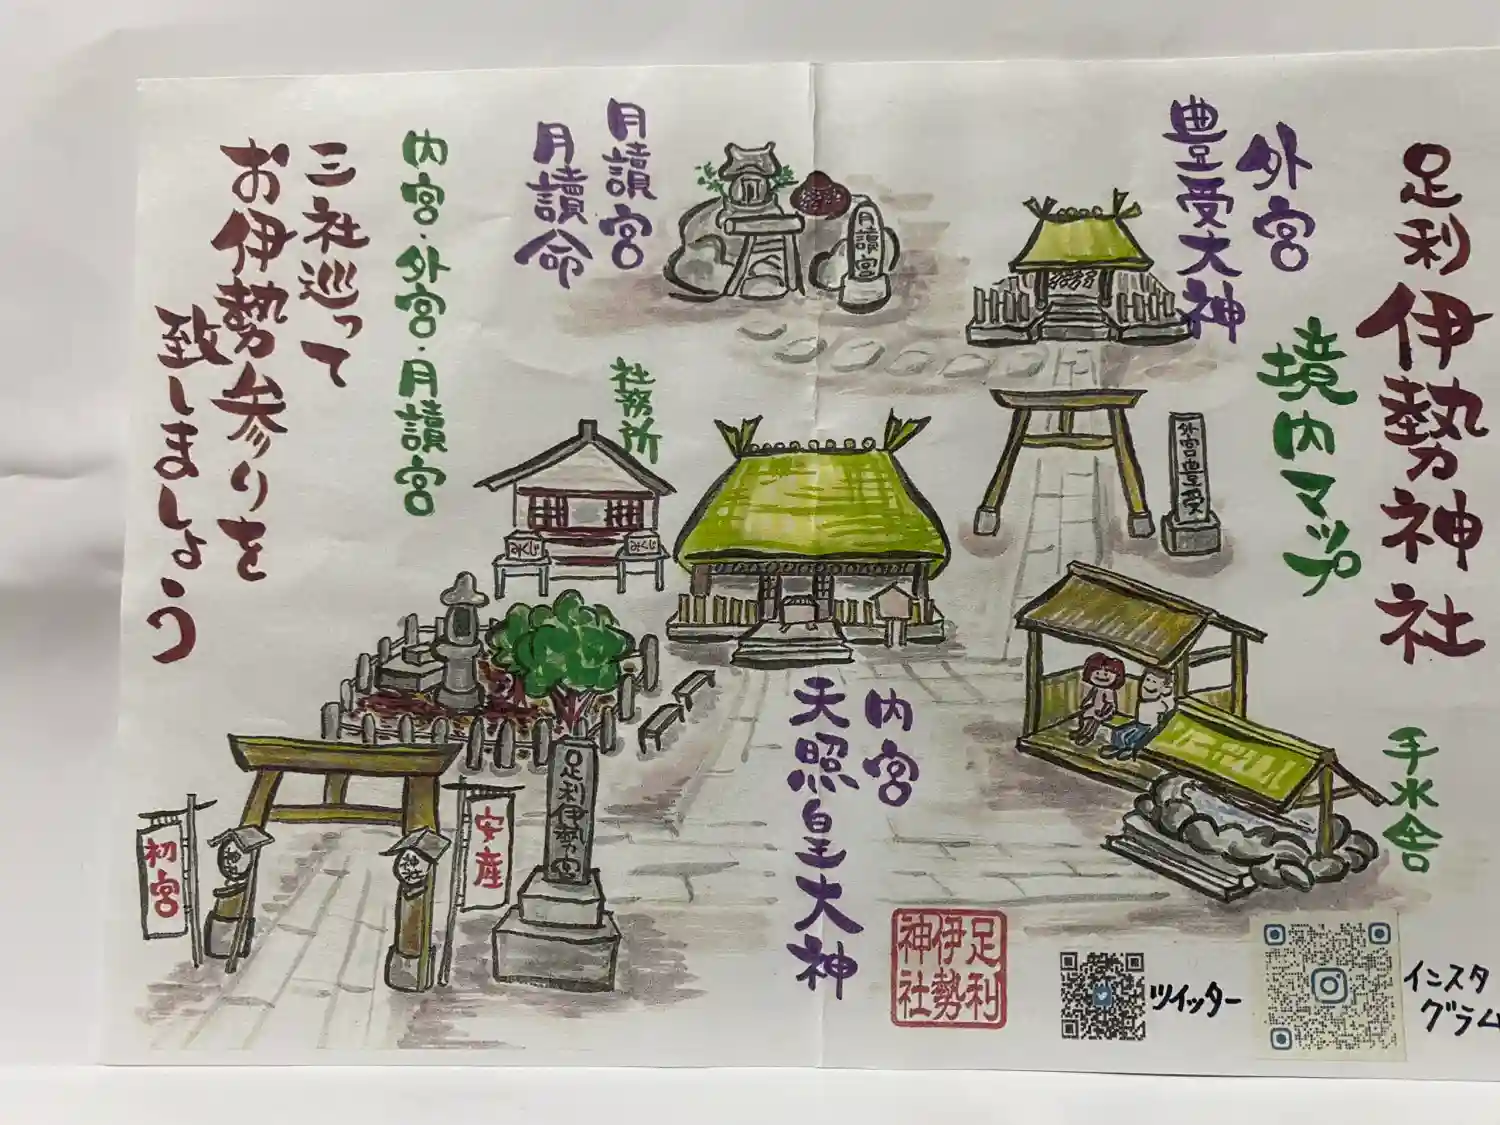 足利伊勢神社
境内マップ
外宮
豊受大神
月讀宮
月讀命
内宮・外宮・月讀宮
三社巡って
お伊勢参りを
致しましょう
月讀宮
外宮豊受
社務所
みくじ
みくじ
手水舎
内宮
天照皇大神
足利伊勢宮
安産
初宮
足利
伊勢
神社
ツイッター
インスタ
グラム